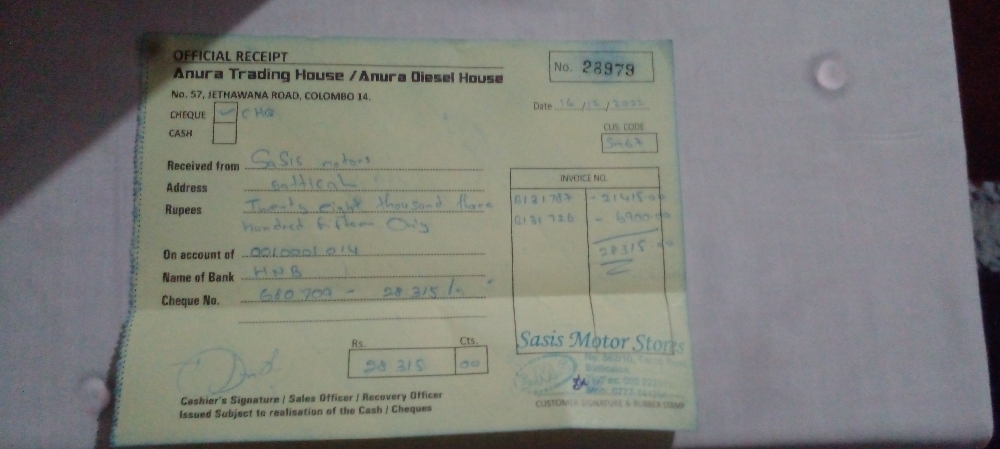 OFFICIAL RECEIPT
No. 28979
Anura Trading House / Anura Diesel House
No. 57, JETHAWANA ROAD, COLOMBO 14.
Date 16/12/2022
CHEQUE CHQ
CASH
CUS. CODE
Received from Sasis motors
Address
INVOICE NO.
Rupees Twenty eight thousand three
hundred fifteen Only
0131787 - 21415.00
0131728 - 6900.00
28315.00
On account of 0010001014
Name of Bank HNB
Cheque No. 680709 - 28 315/-
Rs. Cts.
28 315 00
Sasis Motor Stores
Cashier's Signature / Sales Officer / Recovery Officer
Issued Subject to realisation of the Cash / Cheques
CUSTOMER SIGNATURE & RUBBER STAMP